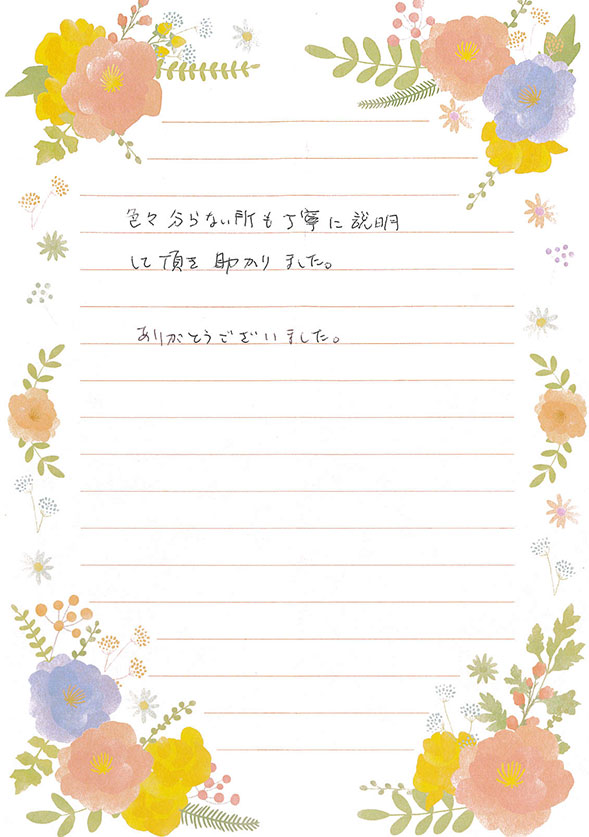 色々分らない所も丁寧に説明
して頂き助かりました。
ありがとうございました。